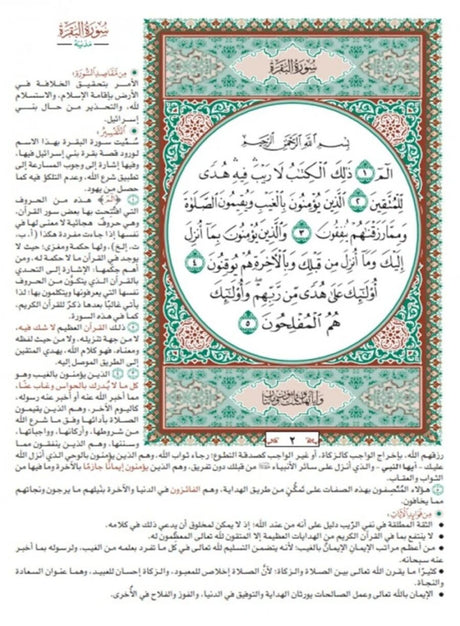 سُورَةُ البَقَرَةِ
مَدَنيّة
مِن مَّقَاصِدِ السُّورَةِ:
الأمر بتحقيق الخلافة في
الأرض بإقامة الإسلام، والاستسلام
لله، والتحذير من حال بني
إسرائيل.
التَّفْسِيرُ:
سُمِّيت سورة البقرة بهذا الاسم
لورود قصة بقرة بني إسرائيل فيها،
وفيها إشارة إلى وجوب المسارعة إلى
تطبيق شرع الله، وعدم التلكؤ فيه كما
حصل من يهود.
﴿الٓمٓ﴾ هذه من الحروف
التي افتُتحت بها بعض سور القرآن،
وهي حروف هجائية لا معنى لها في
نفسها إذا جاءت مفردة هكذا (أ، ب،
ت، إلخ)، ولها حكمة ومغزى؛ حيث لا
يوجد في القرآن ما لا حكمة له، ومن
أهم حِكَمها: الإشارة إلى التحدي
بالقرآن الذي يتكوَّن من الحروف
نفسها التي يعرفونها ويتكلمون بها؛ لذا
يأتي غالبًا بعدها ذكرٌ للقرآن الكريم،
كما في هذه السورة.
ذلك القرآن العظيم لا شك فيه،
لا من جهة تنزيله، ولا من حيث لفظه
ومعناه، فهو كلام الله، يهدي المتقين
إلى الطريق الموصل إليه.
الذين يؤمنون بالغيب وهو
كل ما لا يُدرك بالحواس وغاب عنّا،
مما أخبر الله عنه أو أخبر عنه رسوله،
كاليوم الآخر، وهم الذين يقيمون
الصلاة بأدائها وفق ما شرع الله
من شروطها، وأركانها، وواجباتها،
وسننها، وهم الذين ينفقون مما
رزقهم الله، بإخراج الواجب كالزكاة، أو غير الواجب كصدقة التطوع؛ رجاء ثواب الله، وهم الذين يؤمنون بالوحي الذي أنزل الله
عليك - أيها النبي - والذي أنزل على سائر الأنبياء من قبلك دون تفريق، وهم الذين يؤمنون إيمانًا جازمًا بالآخرة وما فيها من
الثواب والعقاب.
هؤلاء المتَّصفون بهذه الصفات على تمكُّنٍ من طريق الهداية، وهم الفائزون في الدنيا والآخرة بنَيلهم ما يرجون ونجاتهم
مما يخافون.
مِن فَوَائِدِ الآيَاتِ:
• الثقة المطلقة في نفي الرَّيب دليل على أنه من عند الله؛ إذ لا يمكن لمخلوق أن يدعي ذلك في كلامه.
• لا ينتفع بما في القرآن الكريم من الهدايات العظيمة إلا المتقون لله تعالى المعظِّمون له.
• من أعظم مراتب الإيمانِ الإيمانُ بالغيب؛ لأنه يتضمن التسليم لله تعالى في كل ما تفرد بعلمه من الغيب، ولرسوله بما أخبر
عنه سبحانه.
• كثيرًا ما يقرن الله تعالى بين الصلاة والزكاة؛ لأنَّ الصلاة إخلاص للمعبود، والزكاة إحسان للعبيد، وهما عنوان السعادة
والنجاة.
• الإيمان بالله تعالى وعمل الصالحات يورثان الهداية والتوفيق في الدنيا، والفوز والفلاح في الأُخرى.
سُورَةُ البَقَرَةِ
بِسْمِ اللَّهِ الرَّحْمَٰنِ الرَّحِيمِ
الٓمٓ ١ ذَٰلِكَ الْكِتَٰبُ لَا رَيْبَ فِيهِ هُدًى
لِّلْمُتَّقِينَ ٢ الَّذِينَ يُؤْمِنُونَ بِالْغَيْبِ وَيُقِيمُونَ الصَّلَوٰةَ
وَمِمَّا رَزَقْنَٰهُمْ يُنفِقُونَ ٣ وَالَّذِينَ يُؤْمِنُونَ بِمَا أُنزِلَ
إِلَيْكَ وَمَا أُنزِلَ مِن قَبْلِكَ وَبِالْآخِرَةِ هُمْ يُوقِنُونَ ٤
أُوْلَٰئِكَ عَلَىٰ هُدًى مِّن رَّبِّهِمْ وَأُوْلَٰئِكَ
هُمُ الْمُفْلِحُونَ ٥
٢